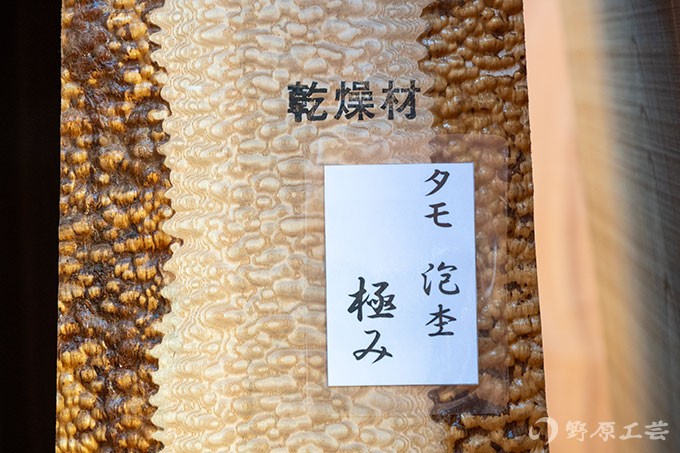 乾燥材
タモ 泡杢
極み
野原工芸